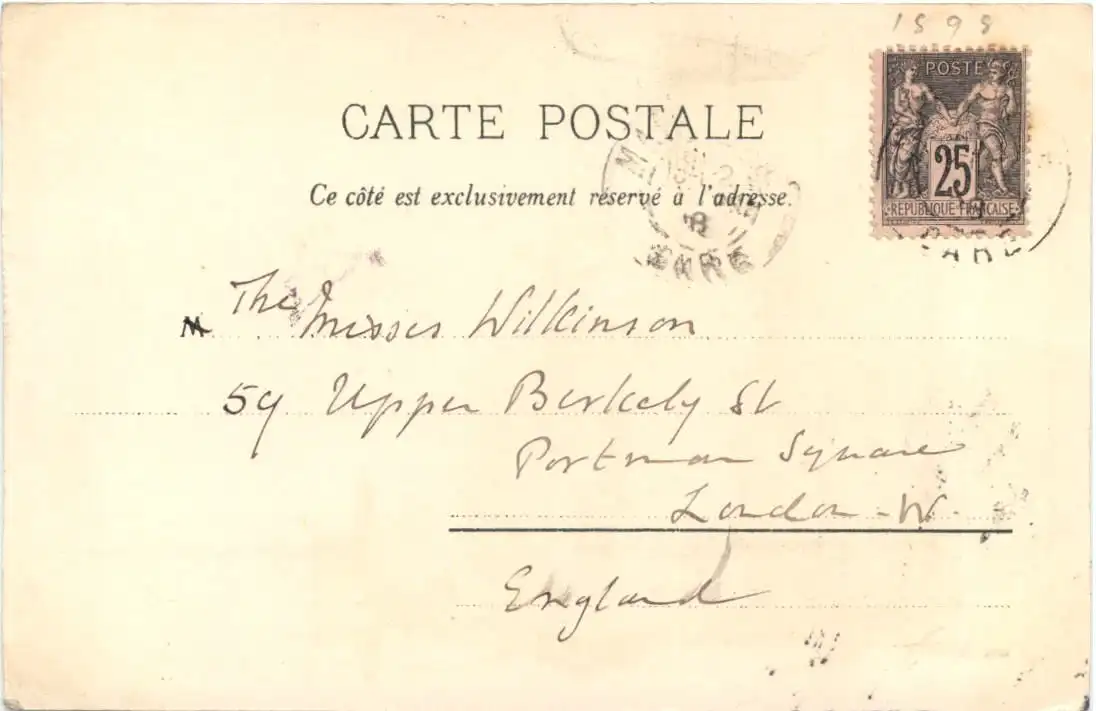 1898
POSTE
25
REPUBLIQUE FRANÇAISE
CARTE POSTALE
Ce côté est exclusivement réservé à l'adresse.
M The Misses Wilkinson
59 Upper Berkely St
Portman Square
London-W.
England